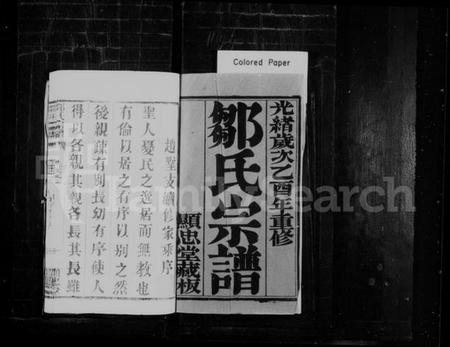 Colored Paper
光緒歲次乙酉年重修
鄒氏宗譜
顯忠堂藏板
續修家乘序
聖人憂民之逸居而無教也
有倫以居之有序以別之然
後親疎有別長幼有序使人
得以各親其親各長其長雖
FamilySearch